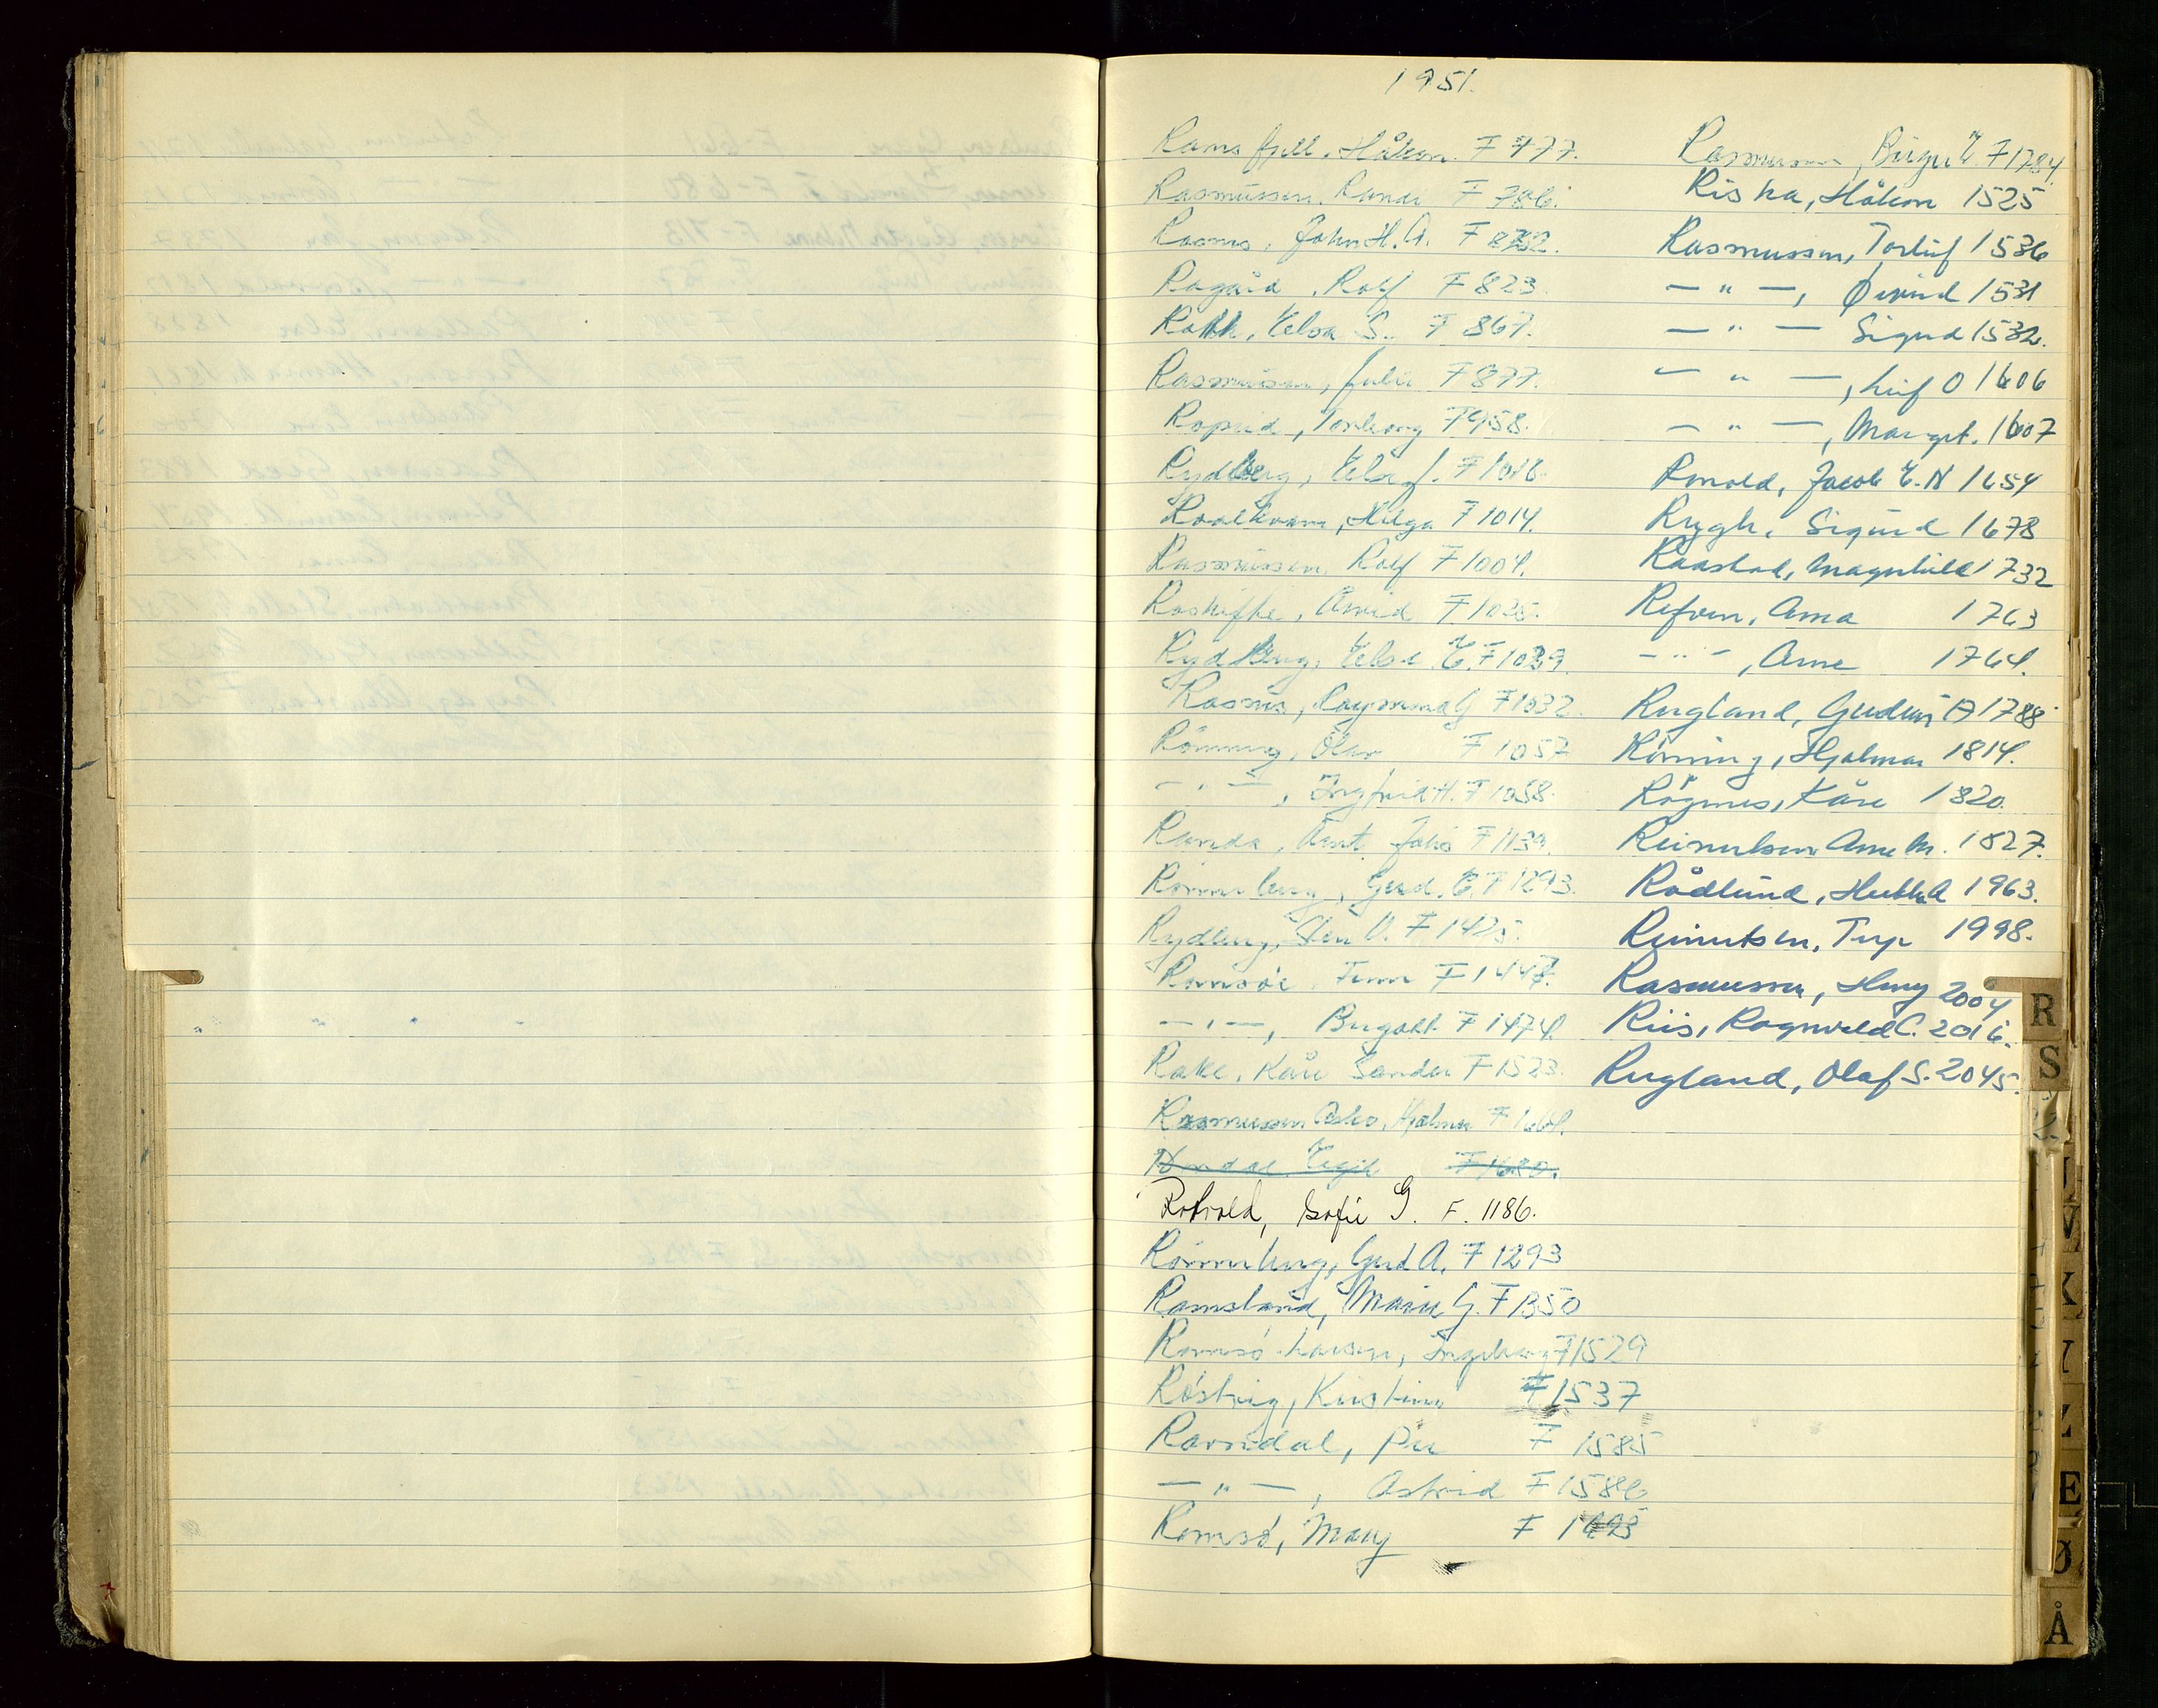 1951.
Ramsfjell, Håkon. F 777.
Rasmussen, Randi F 786.
Rasms, John H. A. F 8752.
Ragård, Rolf F 823
Rohk, Elsa S. F 867.
Rasmussen, Julie F 877.
Rydberg, F 1016
Roalkvam, Helga F 1014.
Rasmussen, Rolf F 1004.
Arvid F 1035.
Rydberg, Else E. F 1039.
Rasms, F 1032
Rönning, Olav F 1057
— " —, Ingfrid H. F 1058.
Randa, Arnt Johs F 1139.
Rönneberg, Gerd. E. F 1293.
Rydberg, Sten O. F 1425.
Ramsöe Finn F 1447.
— " —, Birgoth F 1474.
Rake, Kåre Sander F 1523.
Rasmussen Hjalmar F 1664.
Egil F 1680.
Rotvold, Sofie G. F. 1186.
Rönneberg, Gerd A. F 1293
Ramsland, Marie G. F 1350
Ramsö Larsen, Ingeborg F 1529
Röstvig, Kristine F 1537
Ravndal, Per F 1585
— " —, Astrid F 1586
Ramsö, Mary F
Rasmussen, Birger E. F 1784
Riska, Håkon 1525
Rasmussen, Torleif 1536
— " —, Øivind 1531
— " — Sigurd 1532.
— " —, Leif O 1606
— " —, Margit. 1607
Jacob E. N 1654
Rygh, Sigurd 1678
Raastad, Magnhild 1732
Refvem, Anna 1763
— " —, Arne 1764.
Rugland, Gudrun A 1788
Rönning, Hjalmar 1814.
Rögnes, Kåre 1820.
Reinertsen Arne M. 1827.
Rådlund, A 1963.
Reinertsen, Terje 1998.
Rasmussen, Henry 2004
Riis, Ragnvald C. 2016.
Rugland, Olaf S. 2045.
R
S
V
X
Y
Z
E
Ø
Å